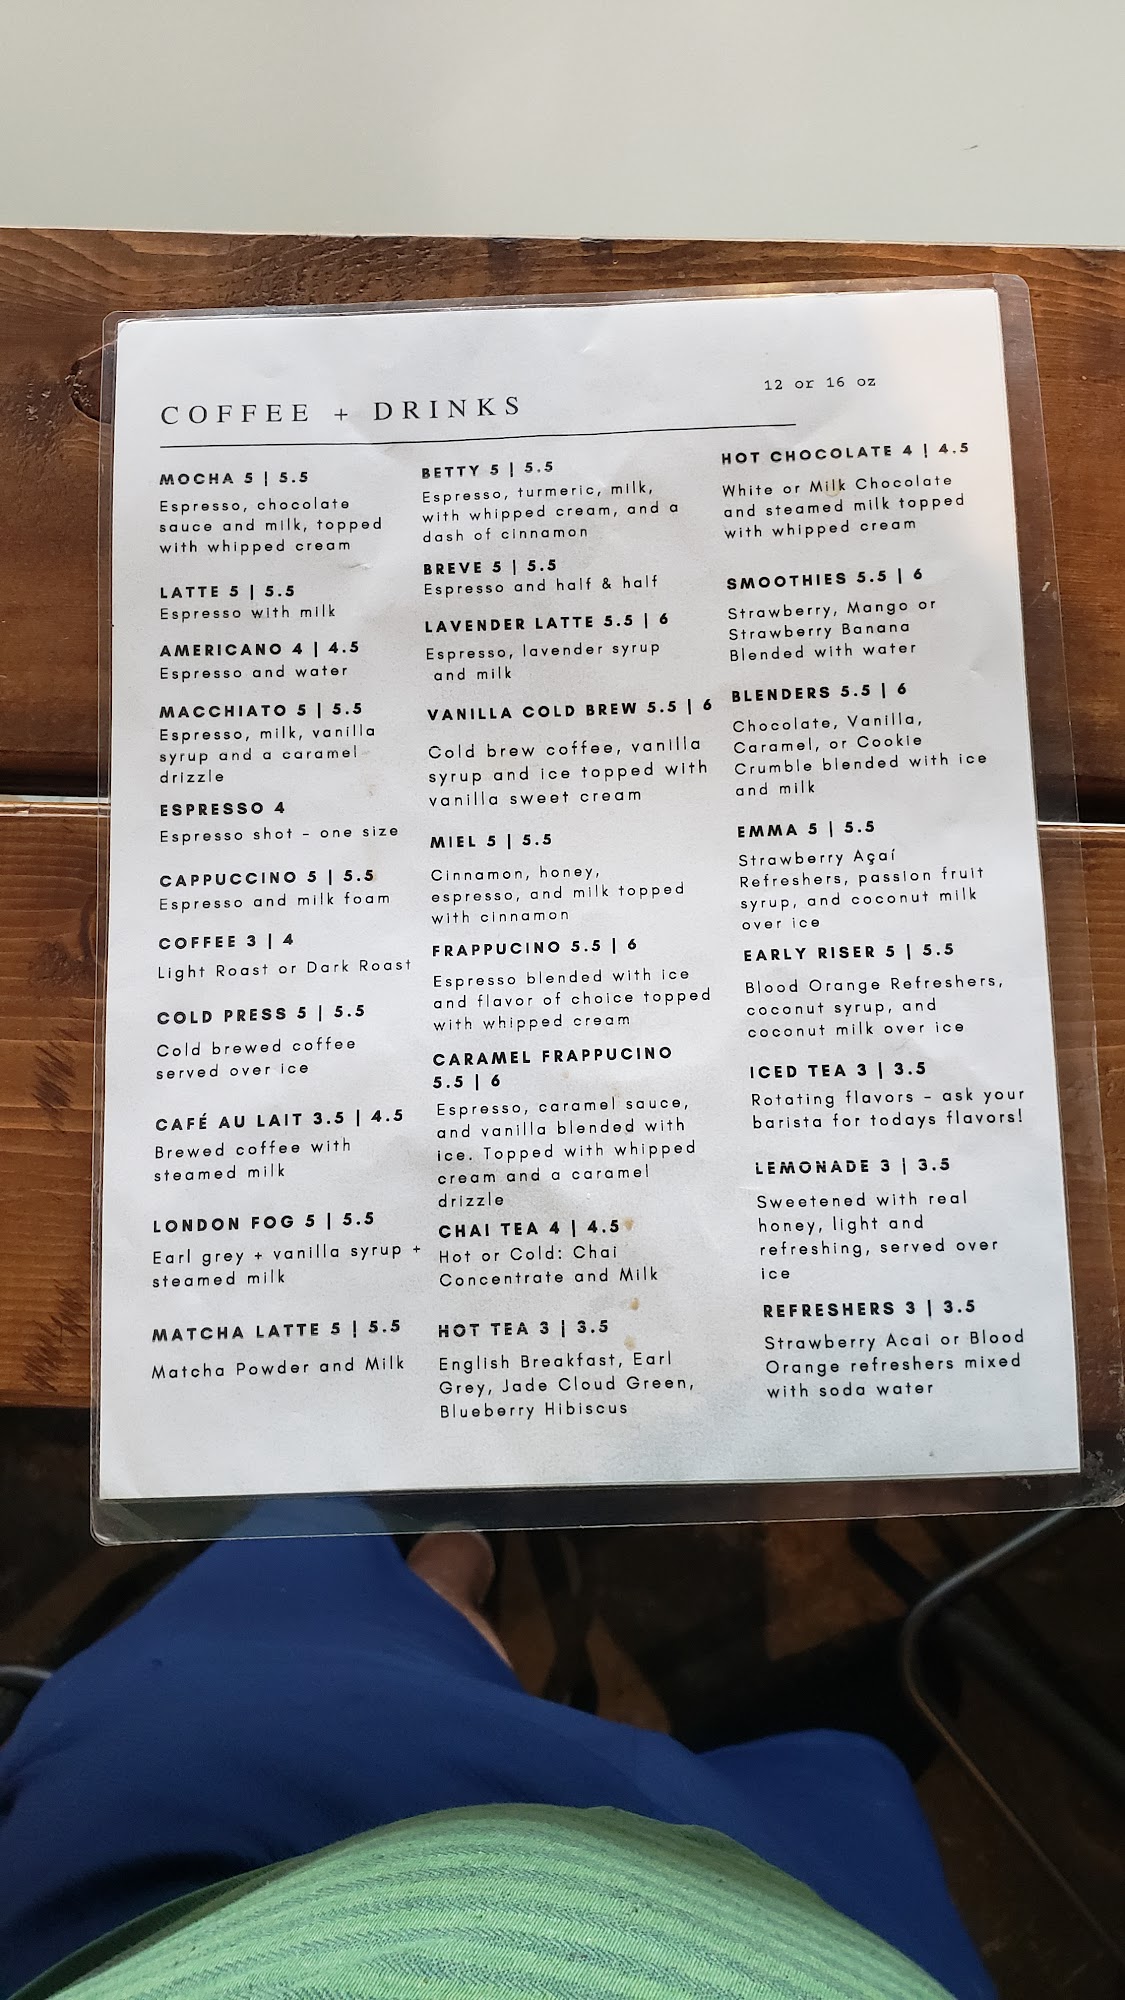 COFFEE + DRINKS
12 or 16 oz
MOCHA 5 | 5.5
Espresso, chocolate
sauce and milk, topped
with whipped cream
LATTE 5 | 5.5
Espresso with milk
AMERICANO 4 | 4.5
Espresso and water
MACCHIATO 5 | 5.5
Espresso, milk, vanilla
syrup and a caramel
drizzle
ESPRESSO 4
Espresso shot - one size
CAPPUCCINO 5 | 5.5
Espresso and milk foam
COFFEE 3 | 4
Light Roast or Dark Roast
COLD PRESS 5 | 5.5
Cold brewed coffee
served over ice
CAFÉ AU LAIT 3.5 | 4.5
Brewed coffee with
steamed milk
LONDON FOG 5 | 5.5
Earl grey + vanilla syrup +
steamed milk
MATCHA LATTE 5 | 5.5
Matcha Powder and Milk
BETTY 5 | 5.5
Espresso, turmeric, milk,
with whipped cream, and a
dash of cinnamon
BREVE 5 | 5.5
Espresso and half & half
LAVENDER LATTE 5.5 | 6
Espresso, lavender syrup
and milk
VANILLA COLD BREW 5.5 | 6
Cold brew coffee, vanilla
syrup and ice topped with
vanilla sweet cream
MIEL 5 | 5.5
Cinnamon, honey,
espresso, and milk topped
with cinnamon
FRAPPUCINO 5.5 | 6
Espresso blended with ice
and flavor of choice topped
with whipped cream
CARAMEL FRAPPUCINO
5.5 | 6
Espresso, caramel sauce,
and vanilla blended with
ice. Topped with whipped
cream and a caramel
drizzle
CHAI TEA 4 | 4.5
Hot or Cold: Chai
Concentrate and Milk
HOT TEA 3 | 3.5
English Breakfast, Earl
Grey, Jade Cloud Green,
Blueberry Hibiscus
HOT CHOCOLATE 4 | 4.5
White or Milk Chocolate
and steamed milk topped
with whipped cream
SMOOTHIES 5.5 | 6
Strawberry, Mango or
Strawberry Banana
Blended with water
BLENDERS 5.5 | 6
Chocolate, Vanilla,
Caramel, or Cookie
Crumble blended with ice
and milk
EMMA 5 | 5.5
Strawberry Açaí
Refreshers, passion fruit
syrup, and coconut milk
over ice
EARLY RISER 5 | 5.5
Blood Orange Refreshers,
coconut syrup, and
coconut milk over ice
ICED TEA 3 | 3.5
Rotating flavors - ask your
barista for todays flavors!
LEMONADE 3 | 3.5
Sweetened with real
honey, light and
refreshing, served over
ice
REFRESHERS 3 | 3.5
Strawberry Acai or Blood
Orange refreshers mixed
with soda water